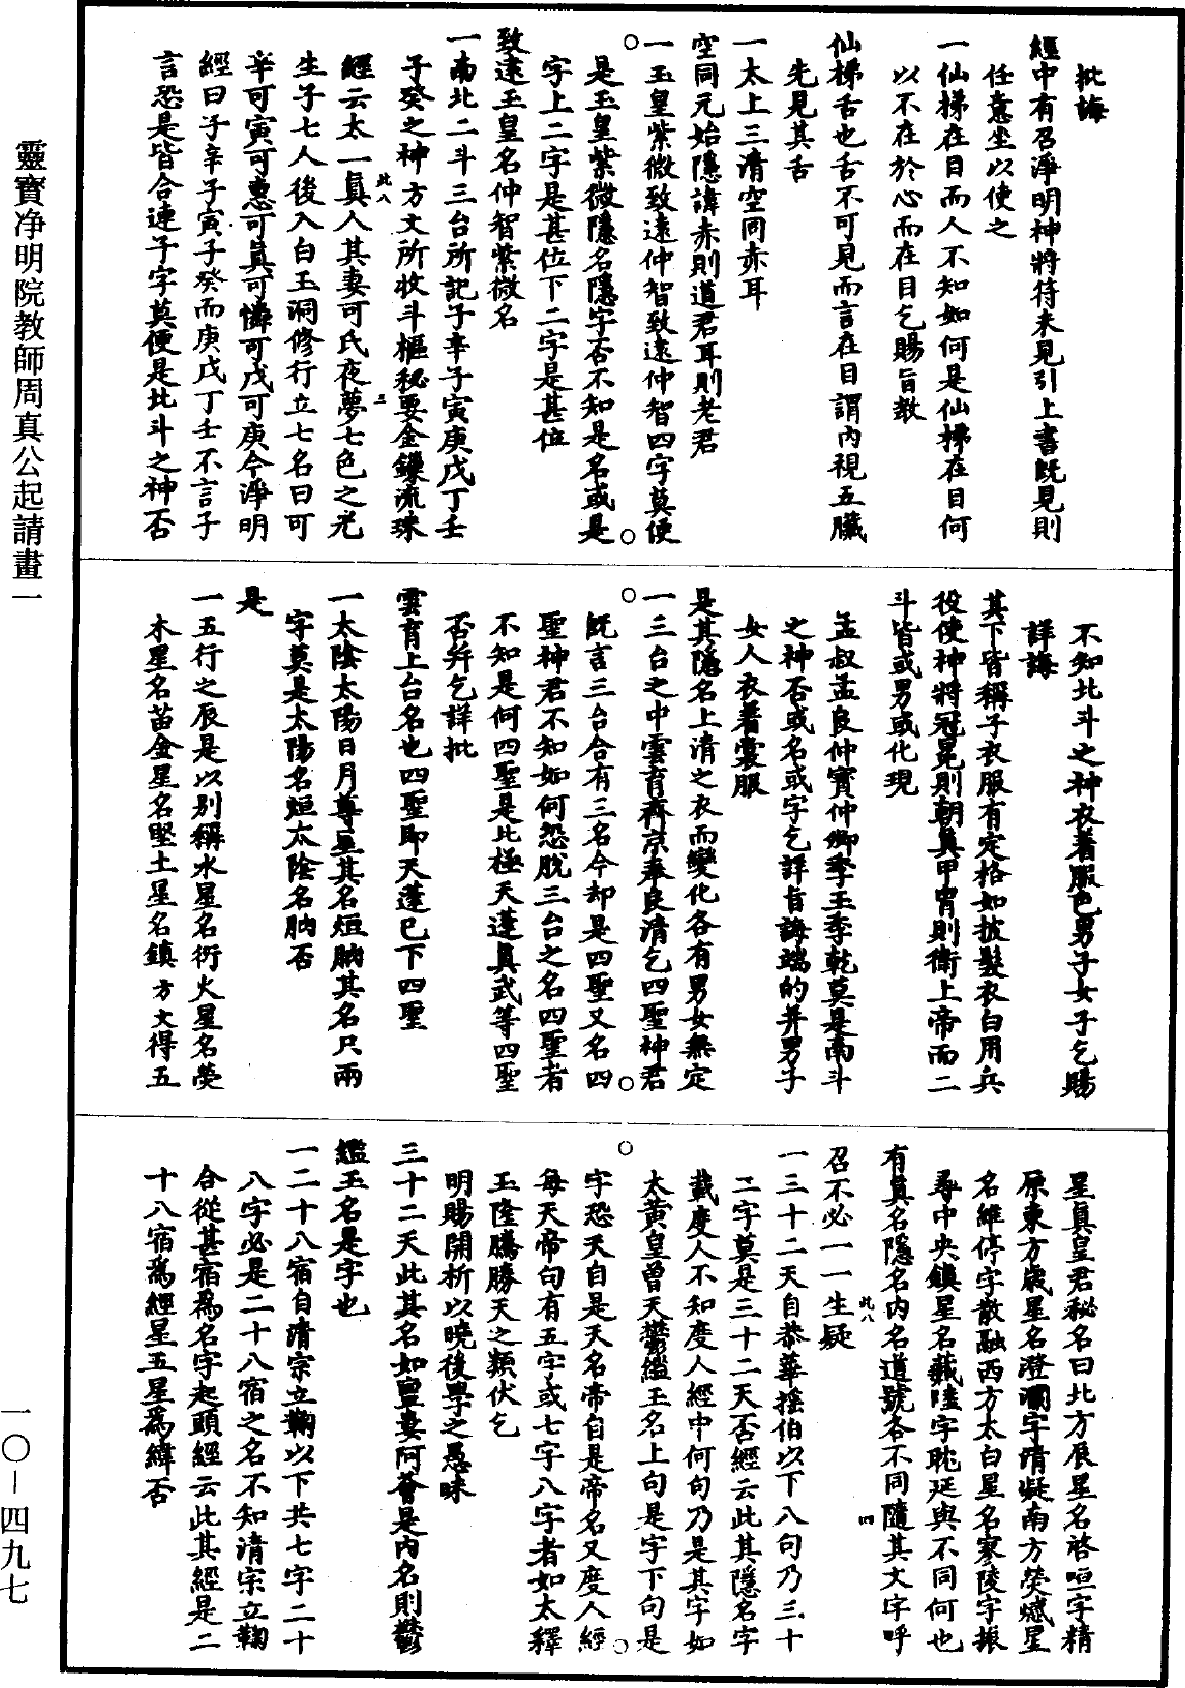 批誨
經中有召淨明神將符未見引上書既見則
任意坐以使之
一仙梯在目而人不知如何是仙梯在目何
以不在於心而在目乞賜旨教
仙梯舌也舌不可見而言在目謂內視五臟
先見其舌
一太上三清空同赤耳
空同元始隱諱赤則道君耳則老君
一玉皇紫微致遠仲智致遠仲智四字莫便
是玉皇紫微隱名隱字否不知是名或是
字上二字是甚位下二字是甚位
致遠玉皇名仲智紫微名
一南北二斗三台所記子辛子寅庚戊丁壬
子癸之神方文所收斗樞秘要金鑠流珠
經云太一真人其妻可氏夜夢七色之光
生子七人後入白玉洞修行立七名曰可
辛可寅可惠可真可憐可戊可庚今淨明
經曰子辛子寅子癸而庚戊丁壬不言子
言恐是皆合連子字莫便是北斗之神否
不知北斗之神衣著服色男子女子乞賜
詳誨
其下皆稱子衣服有定格如披髮衣白用兵
役使神將冠冕則朝真甲冑則衛上帝而二
斗皆或男或化現
孟叔孟良仲寶仲卿季玉季乾莫是南斗
之神否或名或字乞詳旨誨端的并男子
女人衣著裳服
是其隱名上清之衣而變化各有男女無定
一三台之中雲育齊京奉良清乞四聖神君
既言三台合有三名今却是四聖又名四
聖神君不知如何恐脫三台之名四聖者
不知是何四聖是北極天蓬真武等四聖
否并乞詳批
雲育上台名也四聖即天蓬已下四聖
一太陰太陽日月尊星其名烜朒其名只兩
字莫是太陽名烜太陰名朒否
是
一五行之辰是以別稱水星名衍火星名熒
木星名苗金星名堅土星名鎮方文得五
星真皇君秘名曰北方辰星名啓咺字精
源東方歲星名澄瀾字清凝南方熒惑星
名維停字散融西方太白星名寥陵字振
尋中央鎮星名藏陸字耽延與不同何也
有真名隱名內名道號各不同隨其文字呼
召不必一一生疑
一三十二天自恭華搖伯以下八句乃三十
二字莫是三十二天否經云此其隱名字
載度人不知度人經中何句乃是其字如
太黃皇曾天鬱繿玉名上句是字下句是
字恐天自是天名帝自是帝名又度人經
每天帝句有五字或七字八字者如太釋
玉隆騰勝天之類伏乞
明賜開析以曉後學之愚昧
三十二天此其名如亶婁阿薈是內名則鬱
鑑玉名是字也
一二十八宿自清宗立鞠以下共七字二十
八字必是二十八宿之名不知清宗立鞠
合從甚宿爲名字起頭經云此其經是二
十八宿爲經星五星爲緯否
靈寶净明院教師周真公起請畫一
一〇－四九七